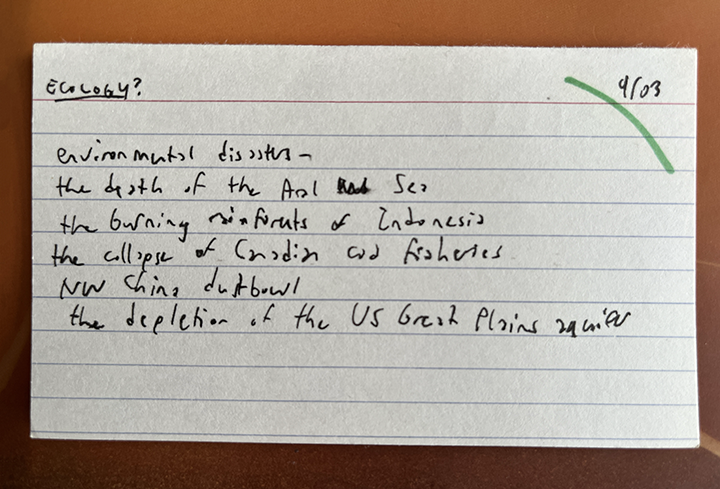 ECOLOGY? 9/03
environmental disasters –
the death of the Aral Sea
the burning rainforests of Indonesia
the collapse of Canadian cod fisheries
NW China dustbowl
the depletion of the US Great Plains aquifer